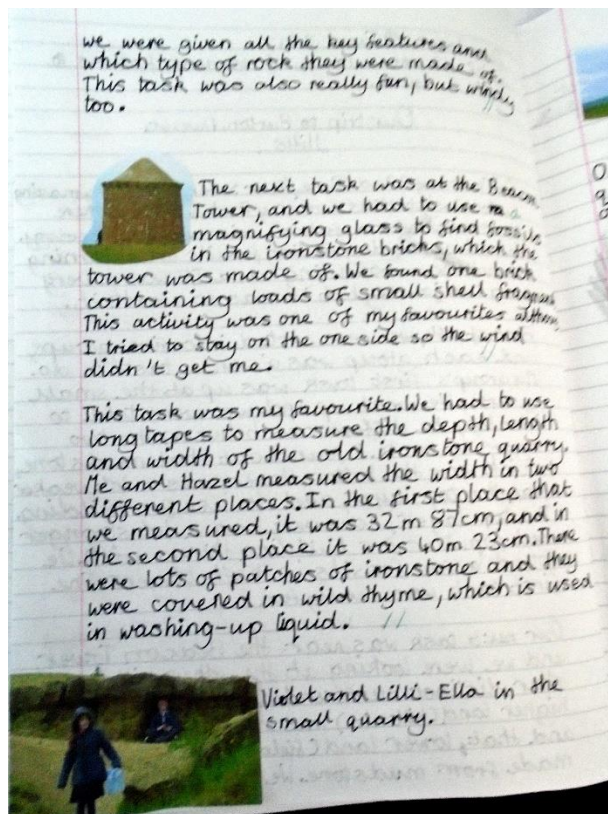 we were given all the key features and
which type of rock they were made of.
This task was also really fun, but windy
too.
The next task was at the Beacon
Tower, and we had to use a
magnifying glass to find fossils
in the ironstone bricks, which the
tower was made of. We found one brick
containing loads of small shell
This activity was one of my favourites
I tried to stay on the one side so the wind
didn't get me.
This task was my favourite. We had to use
long tapes to measure the depth, length
and width of the old ironstone quarry.
Me and Hazel measured the width in two
different places. In the first place that
we measured, it was 32m 87cm, and in
the second place it was 40m 23cm. There
were lots of patches of ironstone and they
were covered in wild thyme, which is used
in washing-up liquid.
Violet and Lilli-Ella in the
small quarry.